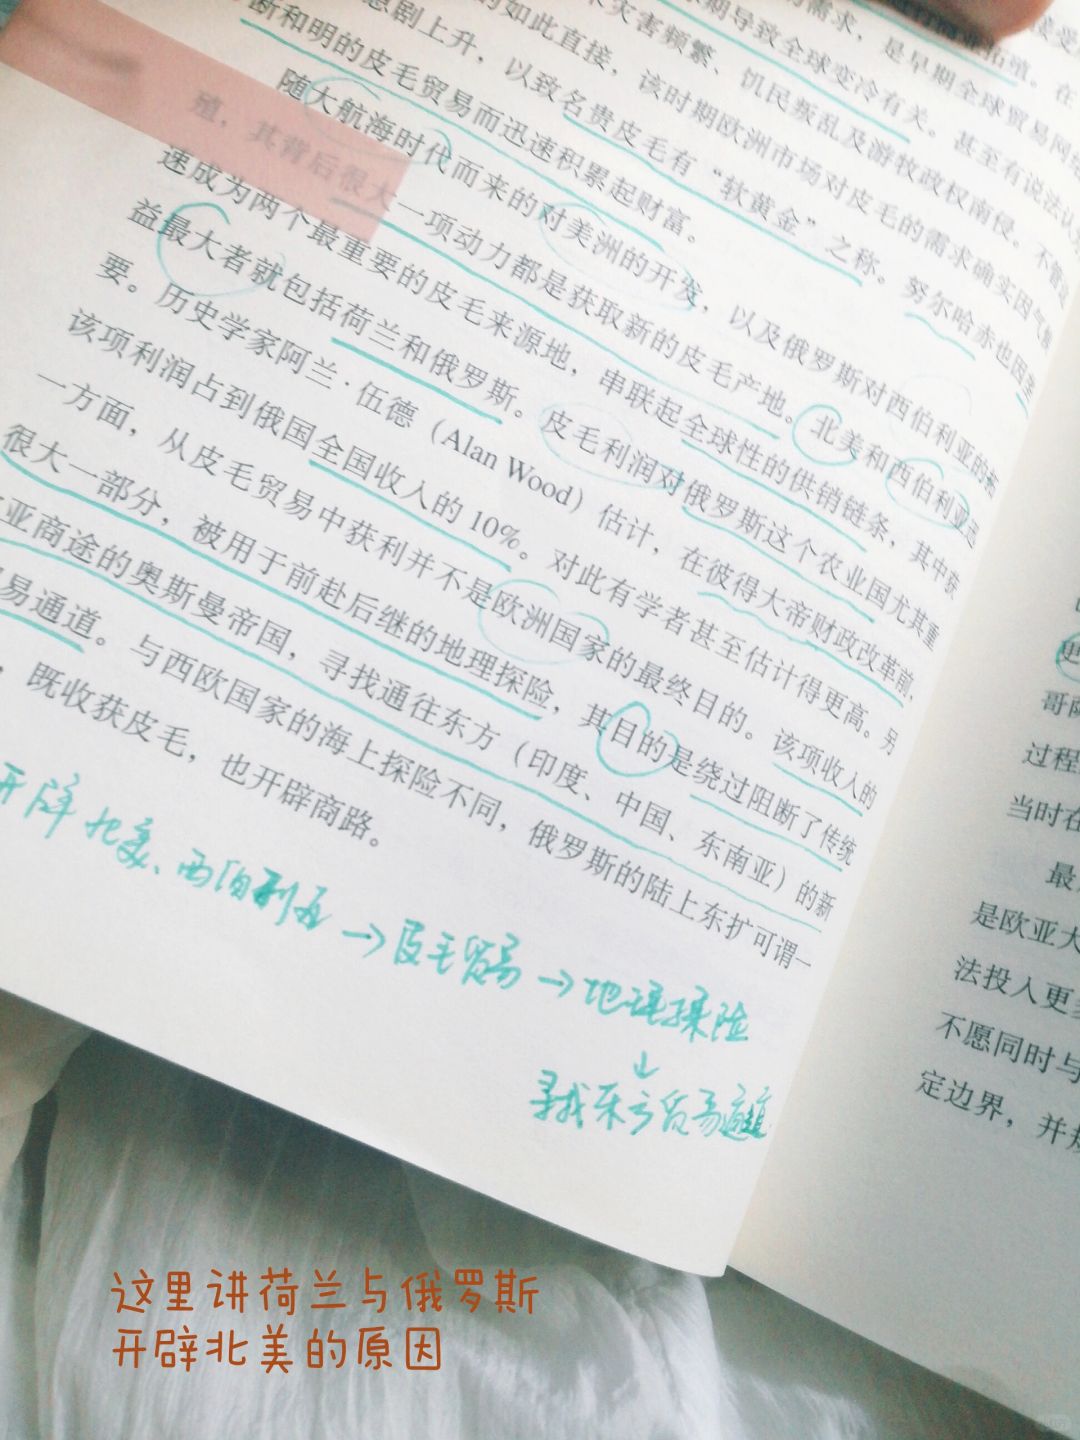 接受
拓殖。在
需求，是早期全球贸易网络
期导致全球变冷有关。甚至有说法认
灾害频繁、饥民叛乱及游牧政权南侵。不管这
的如此直接，该时期欧洲市场对皮毛的需求确实因气候
急剧上升，以致名贵皮毛有“软黄金”之称。努尔哈赤也因垄
断和明的皮毛贸易而迅速积累起财富。
随大航海时代而来的对美洲的开发，以及俄罗斯对西伯利亚的拓
殖，其背后很大一项动力都是获取新的皮毛产地。北美和西伯利亚迅
速成为两个最重要的皮毛来源地，串联起全球性的供销链条，其中获
益最大者就包括荷兰和俄罗斯。皮毛利润对俄罗斯这个农业国尤其重
要。历史学家阿兰·伍德（Alan Wood）估计，在彼得大帝财政改革前，
该项利润占到俄国全国收入的10%。对此有学者甚至估计得更高。另
一方面，从皮毛贸易中获利并不是欧洲国家的最终目的。该项收入的
很大一部分，被用于前赴后继的地理探险，其目的是绕过阻断了传统
亚商途的奥斯曼帝国，寻找通往东方（印度、中国、东南亚）的新
易通道。与西欧国家的海上探险不同，俄罗斯的陆上东扩可谓一
，既收获皮毛，也开辟商路。
北美、西伯利亚→皮毛贸易→地理探险
↓
寻找东方贸易通道
更
哥萨
过程
当时在
最
是欧亚大
法投入更多
不愿同时与
定边界，并
这里讲荷兰与俄罗斯
开辟北美的原因